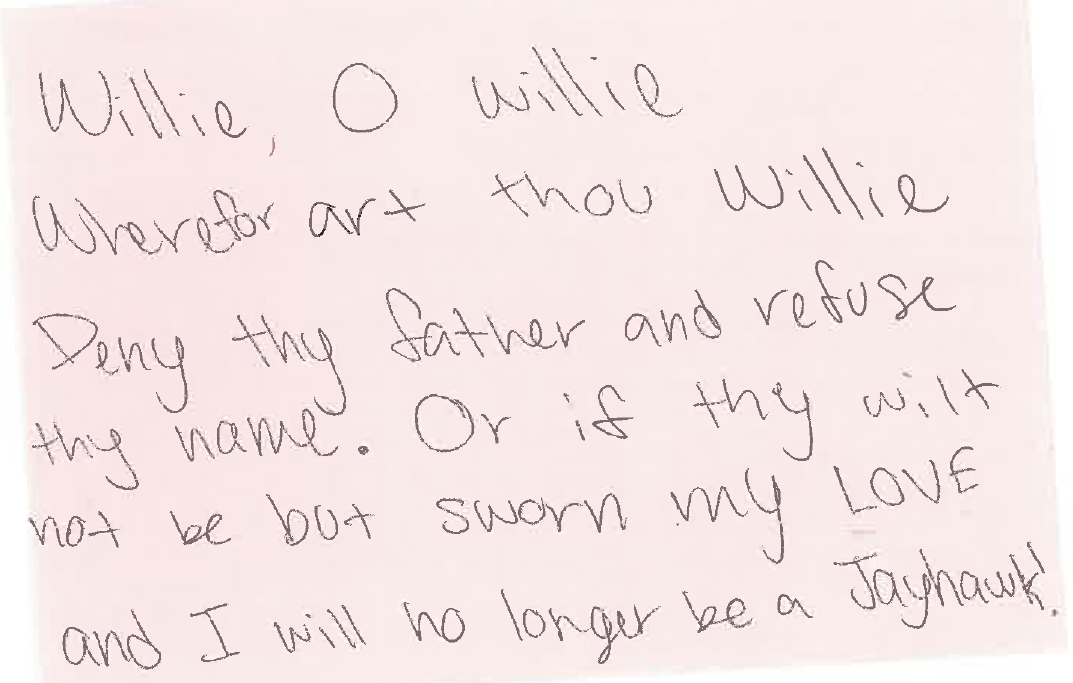 Willie, O willie
Wherefor art thou Willie
Deny thy father and refuse
thy name. Or if thy wilt
not be but sworn my LOVE
and I will no longer be a Jayhawk!